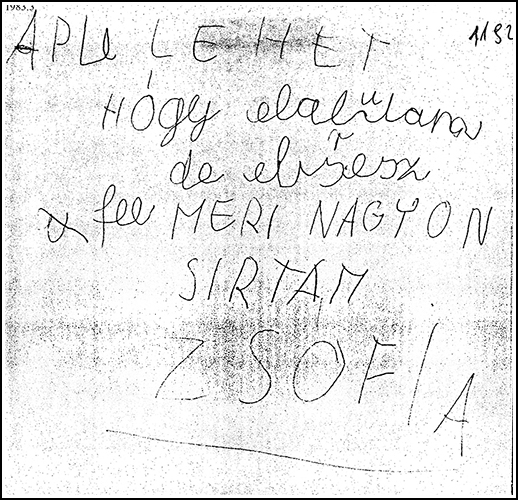 1983.3.
1192
APU LEHET
HÓGY elalütlara
de elv̋esz
fel MERI NAGYON
SIRTAM
ZSOFÍA